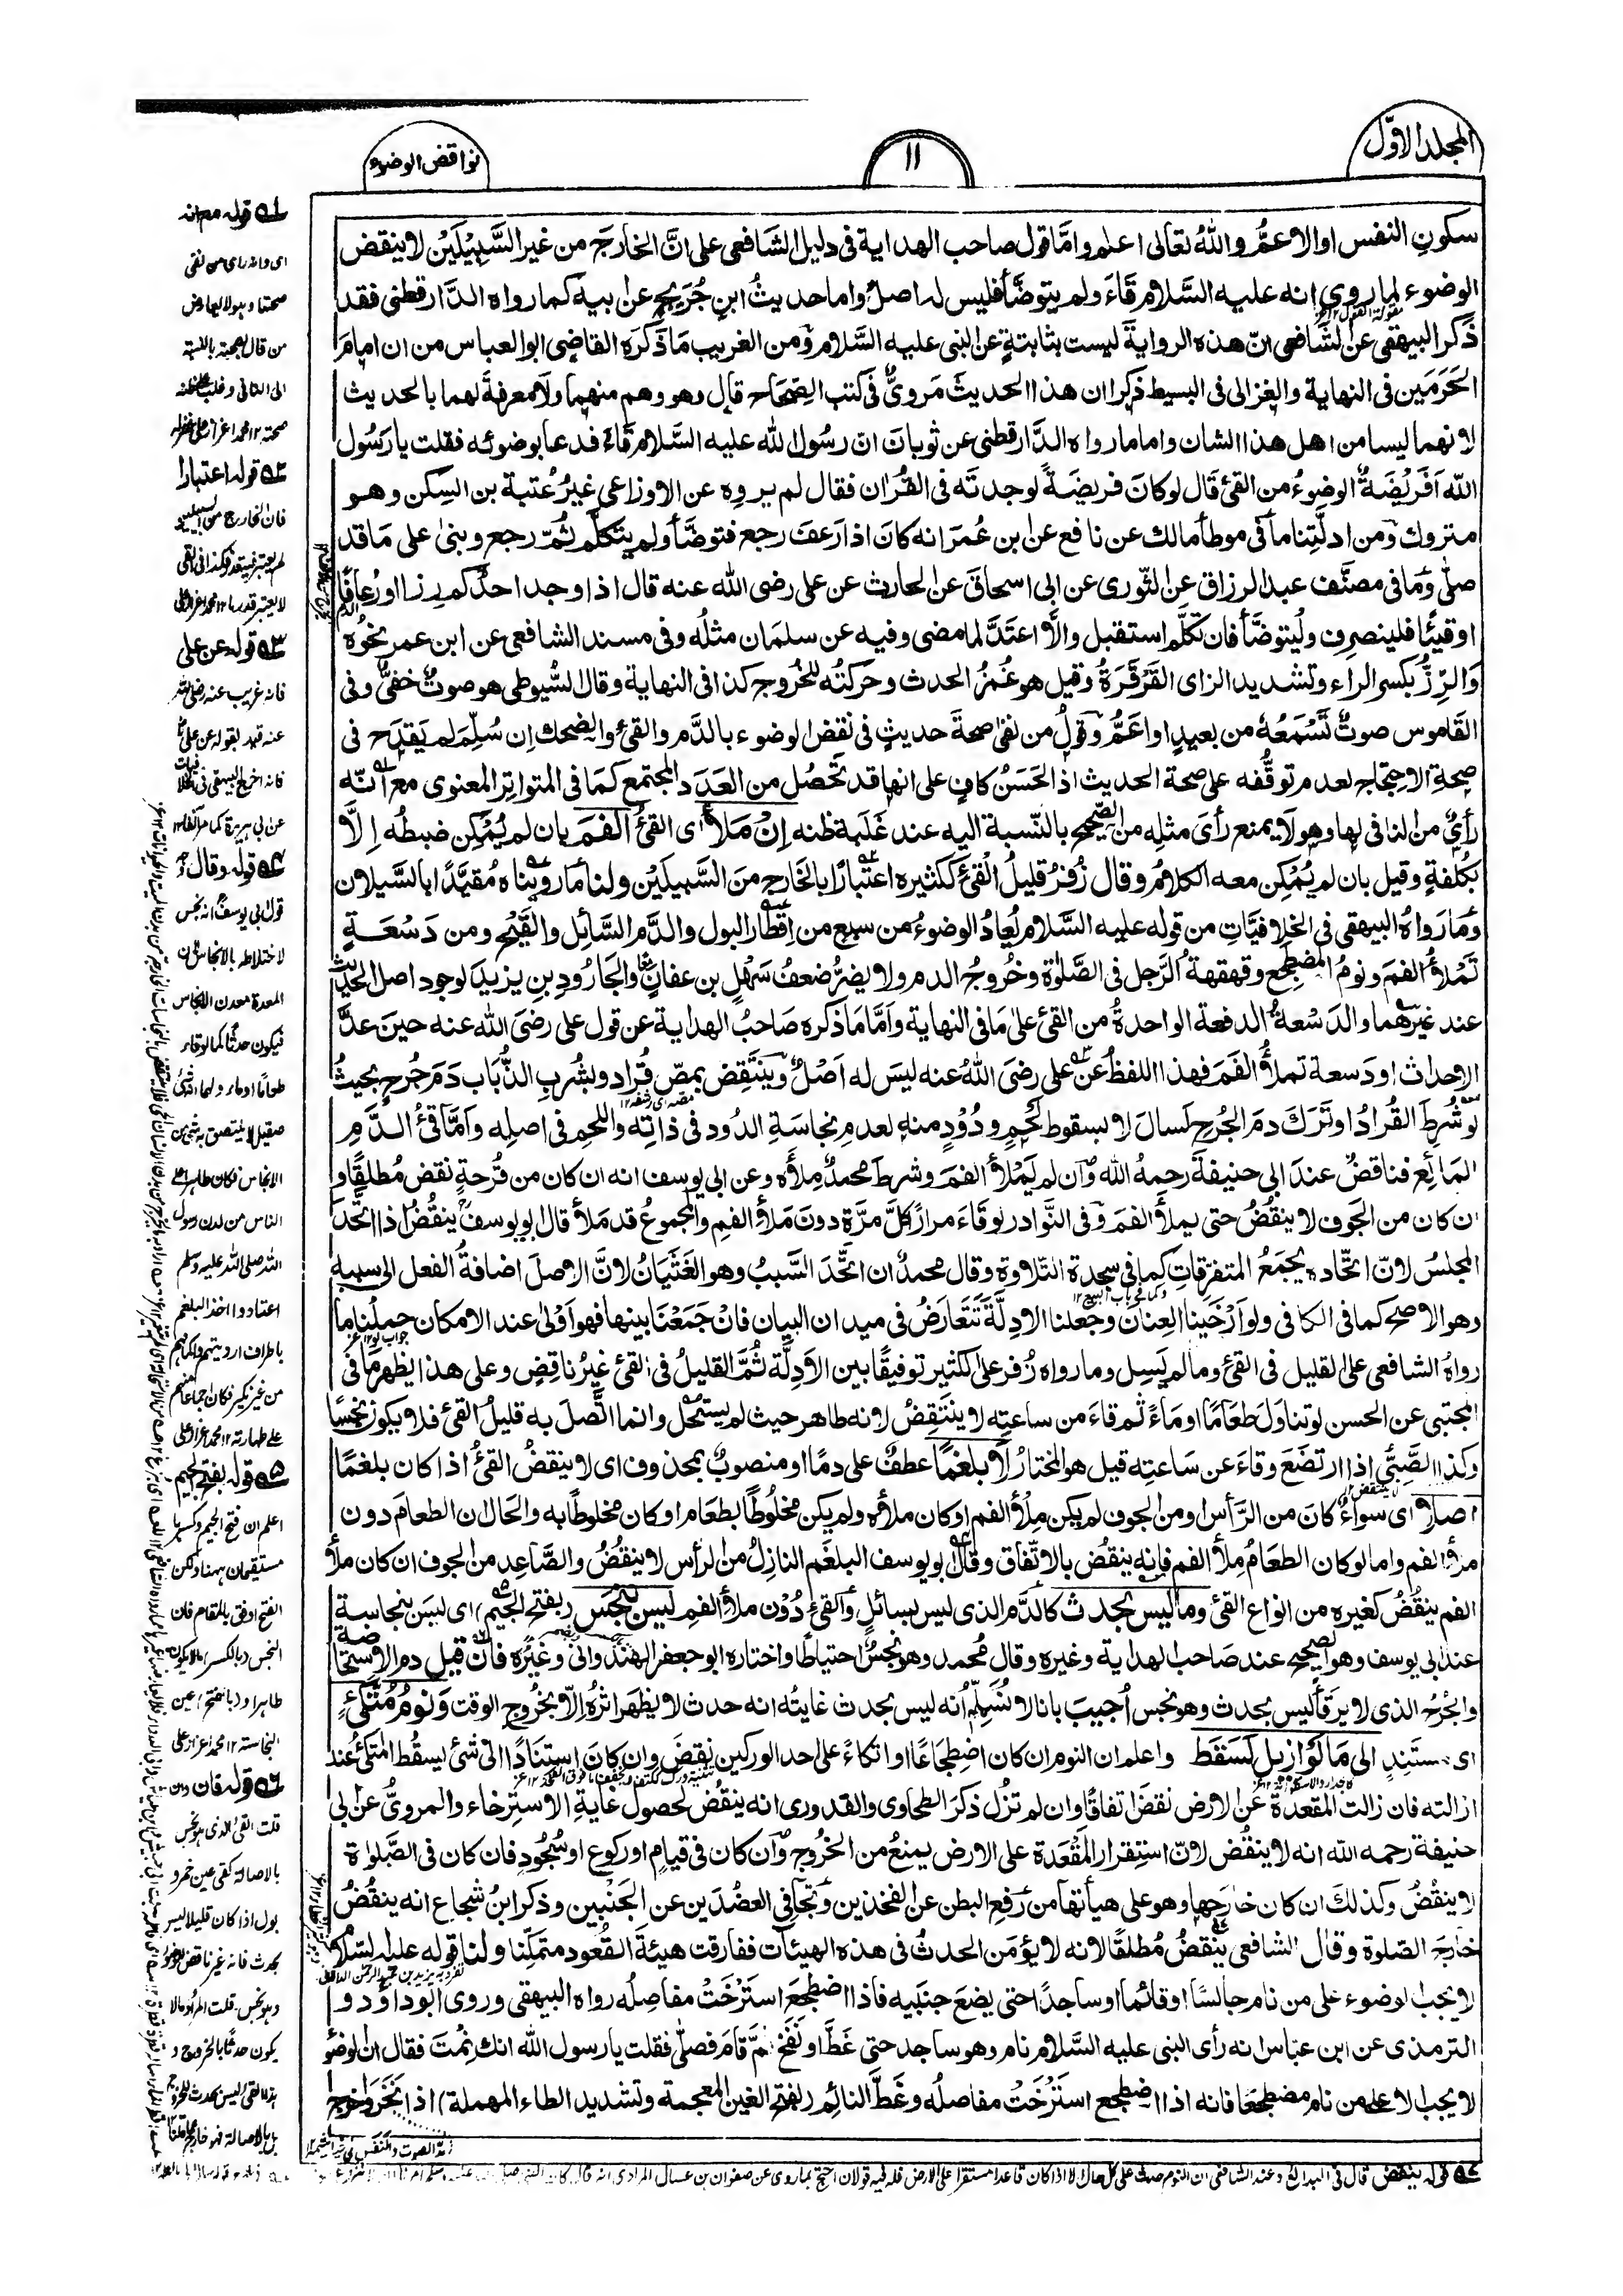 المجلد الاوّل
١١
نواقض الوضوء
سكونِ النفس او الاعمُّ واللهُ تعالى اعلم وامّا قول صاحب الهداية فى دليل الشافعى على انَّ الخارجَ من غير السَّبِيْلَيْن لا ينقض
الوضوء لما روى انه عليه السَّلام قَاءَ ولم يتوضَّأ فليس له اصلٌ واما حديثُ ابنِ جُرَيجٍ عن ابيه كما رواه الدَّارقطنى فقد
ذَكر البيهقى عن الشَّافعى انّ هذه الرواية ليست بثابتةٍ عن النبى عليه السَّلام ومن الغريب مَا ذَكرَه القاضى ابو العباس من ان امامَ
الحَرَمَين فى النهاية والغزالى فى البسيط ذكرا ان هذا الحديثَ مَروىٌّ فى كتب الصِّحَاح قال وهو وهم منهما ولا معرفةَ لهما بالحديث
لانهما ليسا من اهل هذا الشان واما ما رواه الدَّارقطنى عن ثوبانَ انّ رسُولَ الله عليه السَّلام قَاءَ فدعا بوضوئه فقلت يا رَسُول
الله اَفَرِيْضَةٌ الوضوءُ من القئ قَال لو كانَ فريضَةً لوجدتَه فى القُرْان فقال لم يروِه عن الاوزاعى غيرُ عُتبة بن السكن وهو
متروك ومن ادلَّتِنا ما فى موطأ مالك عن نافع عن ابن عُمَرَ انه كانَ اذا رَعفَ رجعَ فتوضَّأ ولم يتكلَّم ثُمّ رجع وبنىٰ على مَا قد
صلّى وما فى مصنَّف عبد الرزاق عن الثّورى عن ابى اسحاقَ عن الحارث عن على رضى الله عنه قال اذا وجد احدُكم رزا او رُعافًا
او قيئًا فلينصرف وليتوضَّأ فان تكلَّم استقبل والاّ اعتَدَّ لما مضى وفيه عن سلمان مثلُه وفى مسند الشافعى عن ابن عمر نحوُه
وَالرِّزُّ بكسر الراء وتشديد الزاى القَرْقَرَةُ وقيل هو غَمْزُ الحدث وحَركتُه للخُروج كذا فى النهاية وقال السُّيوطى هو صوتٌ خفىٌّ وفى
القَاموس صوتٌ تَسْمَعُهٗ من بعيدٍ او اعَمُّ وقولُ من نفىٰ صحةَ حديثٍ فى نقض الوضوء بالدَّم والقئ والضحك اِن سُلِّمَ لم يَقدَح فى
صحةِ الاحتجاج لعدم توقُّفه على صحة الحديث اذ الحَسَنُ كافٍ على انها قد تَحصُل من العَدَد المجتمع كمَا فى المتواتر المعنوى مع انّه
رأىٌ من النافى لها وهو لا يمنع رأىَ مثلِه من الصّحيح بالنّسبة اليه عند غَلَبة ظنه اِنْ مَلَأَ اى القئُ الفَمَ بان لم يُمْكِن ضبطُه اِلَّا
بكُلفةٍ وقيل بان لم يُمْكِن معه الكلامُ وقال زُفرُ قليلُ القئِ ككثيره اعتبارًا بالخارج منَ السَّبيلَين ولنا ما رويناه مُقيَّدًا بالسَّيلان
وما رواهُ البيهقى فى الخلافيَّات من قوله عليه السَّلام يُعادُ الوضوءُ من سبعٍ من اِقطار البول والدَّم السَّائل والقَيْح ومن دَسْعَةٍ
تَمْلأُ الفمَ ونومُ المضطجِع وقهقهةُ الرَّجل فى الصَّلوٰة وخُروجُ الدم ولا يضرُّ ضعفُ سَهْلِ بن عفان والجَارُودِ بنِ يزيدَ لوجود اصل الحديث
عند غيرهما والدَسْعةُ الدفعة الواحدةُ من القئ علىٰ مَا فى النهاية وَامَّا مَا ذكره صَاحبُ الهداية عن قول على رضىَ الله عنه حينَ عدَّ
الاحداثَ او دَسعة تملأُ الفَمَ فهذا اللفظُ عن على رضىَ اللهُ عنه ليسَ له اَصْلٌ ويَنْتَقِض بمصِّ قُرادٍ وبشُربِ الذُّباب دَمَ جُرحٍ بحيثُ
لو شُرِطَ القُرادُ او تَرَكَ دمَ الجُرح لَسالَ لا بسقوط لحمٍ ودُوْدٍ منه لعدمِ نجاسَةِ الدُّود فى ذاتِه واللحم فى اصلِه واَمَّا قئُ الدَّمِ
المَائِعِ فناقضٌ عندَ ابى حنيفةَ رحمهُ الله وان لم يَمْلأ الفمَ وشرطَ محمدٌ مِلأَه وعن ابى يوسف انه ان كان من قُرحةٍ نقض مُطلقًا و
ان كان من الجَوف لا ينقُضُ حتى يملأَ الفمَ وفى النَّوادر لو قاءَ مرارًا كلَّ مرَّةٍ دونَ مَلأ الفمِ والمجموعُ قد مَلأ قال ابو يوسفَ ينقُضُ اذا اتَّحدَ
المجلسُ لانّ اتحاده يجمَعُ المتفرقاتِ كما فى سجدة التّلاوة وقال محمدٌ ان اتَّحَدَ السَّببُ وهو الغَثَيَانُ لانَّ الاصلَ اضافةُ الفعل الى سببه
وهو الاصح كما فى الكافى ولو اَرْخَينا العِنانَ وجعلنا الادلّةَ تَتَعارَضُ فى ميدان البيان فانْ جَمَعْنَا بينها فهو اَوْلىٰ عند الامكان حملُنا ما
رواهُ الشافعى على القليل فى القئ وما لم يَسِل وما رواه زُفر على الكثير توفيقًا بين الاَدِلّة ثُمَّ القليلُ فى القئ غيرُ ناقِضٍ وعلى هذا يظهر ما فى
المجتبى عن الحسن لو تناولَ طَعَامًا او مَاءً ثم قاءَ من ساعتِه لا ينتقِضُ لانه طاهر حيث لم يستحل وانما اتَّصلَ به قليلُ القئ فلا يكون نجسًا
وكذا الصَّبِىُّ اذا ارتضَعَ وقاءَ عن سَاعتِه قيل هو المختارُ لا بلغمًا عطفٌ على دمًا او منصوبٌ بمحذوف اى لا ينقضُ القئُ اذا كان بلغمًا
اصلا اى سواءٌ كانَ من الرَّأس او من الجوف لم يكن مِلأ الفم او كان ملأَه ولم يكن مخلُوطًا بطعَام او كان مخلوطًا به والحَال ان الطعامَ دون
ملأ الفم واما لو كان الطعَامُ مِلأ الفم فانه ينقُض بالاتّفاق وقال ابو يوسف البلغَم النازِلُ من الرأس لا ينقُضُ والصَّاعِد من الجوف ان كان ملأ
الفم ينقُضُ كغيره من انواع القئ وما ليس بحدث كالدَّم الذى ليس بسائلٍ والقئ دُوْن ملأ الفم ليس بنجَس (بفتح الجيم) اى ليسَ بنجاسةٍ
عند ابى يوسف وهو الصَّحيح عند صَاحب الهداية وغيره وقال مُحمد وهو نجسٌ احتياطًا واختاره ابو جعفر الهِندُوانى وغيرُه فان قيل دم الاستحاضة
والجُرحُ الذى لا يرقأ ليس بحدث وهو نجس اُجيبَ بانا لا نُسَلِّمُ انه ليس بحدث غايتُه انه حدث لا يظهر اثرُه اِلّا بخُروج الوقت ونومُ مُتَّكِئٍ
اى مستَنِدٍ الى مَا لَو ازيل لَسَقَط واعلم ان النوم ان كان اضطِجَاعًا او اتكاءً على احد الوركين نقضَ وان كانَ استِنَادًا الى شئ ليسقُط المتكئُ عند
ازالته فان زالت المقعدةُ عن الارض نقضَ اتفاقًا وان لم تَزُل ذكرَ الطحاوى والقدورى انه ينقُض لحصول غايةِ الاسترخاء والمروىُّ عن ابى
حنيفة رحمه الله انه لا ينقُض لانّ استقرارَ المَقْعَدة على الارض يمنعُ من الخُروج وان كان فى قيامٍ او ركوع او سُجُودٍ فان كان فى الصَّلوٰة
لا ينقُضُ وكذلكَ ان كان خارجَها وهو على هيأتها من رَفعِ البطن عن الفخذين وتَجافِى العضُدَين عن الجَنْبين وذكر ابنُ شجاع انه ينقُضُ
خارجَ الصّلوة وقال الشافعى ينقضُ مُطلقًا لانه لا يؤمَن الحدثُ فى هذه الهيئات ففارقت هيئةَ القُعود متمكّنًا ولنا قوله عليه السّلام
لا يجب الوضوء على من نام جالسًا او قائما او ساجدًا حتى يضعَ جنبَيه فاذا اضطجعَ استَرْخَتْ مفاصلُه رواه البيهقى وروى ابو داؤد و
الترمذى عن ابن عبّاس انه رأى النبى عليه السَّلام نام وهو ساجد حتى غَطَّ او نَفَخَ ثمّ قامَ فصلّٰى فقلت يا رسول الله انك نِمْتَ فقال ان الوضوء
لا يجب الا على من نام مضطجعًا فانه اذا اضطجع استَرْخَتْ مفاصلُه وغَطَّ النائِم (بفتح الغين المعجمة وتشديد الطاء المهملة) اذا نَخَرَ واخرج
قوله مع انه
اى وانه راى من نفى
صحتها وهو لا يعارض
من قال بصحته بالنسبة
صحته ١٢ محمد اعزاز على غفر له
قوله اعتبارا
فان الخارج من السبيلين
قوله عن على
فانه غريب عنه رضى الله
عنه قيد لقوله عن على
فانه اخرج البيهقى فى الخلافيات
عن ابى هريرة كما مر آنفا ١٢
قوله وقال
قول ابى يوسف انه نجس
لاختلاطه بالانجاس لان
المعدة معدن الانجاس
فيكون حدثا كما لو قاء
طعاما او ماء ولهما انه شئ
صقيل لا يلتصق به شئ من
الانجاس فكان طاهرا
الناس من لدن رسول
الله صلى الله عليه وسلم
اعتادوا اخذ البلغم
باطراف ارديتهم واكمامهم
من غير نكير فكان اجماعا منهم
على طهارته ١٢ محمد اعزاز على
قوله بفتح الجيم
اعلم ان فتح الجيم وكسرها
مستقيمان ههنا ولكن
الفتح اوفق بالمقام فان
النجس (بالكسر) ما لا يكون
طاهرا و(بالفتح) عين
النجاسة ١٢ محمد اعزاز على
قوله فان
قلت القئ الذى هو نجس
بالاصالة كقئ عين خمر و
بول اذا كان قليلا ليس
بحدث فانه غير ناقض للوضوء
وهو نجس قلت المراد ما لا
يكون حدثا بالخروج و
قوله ينقض قال فى البدائع وعند الشافعى ان النوم حدث على كل حال الا اذا كان قاعدا مستقرا على الارض فله فيه قولان احتج بما روى عن صفوان بن عسال المرادى انه قال كان النبى صلى الله عليه وسلم